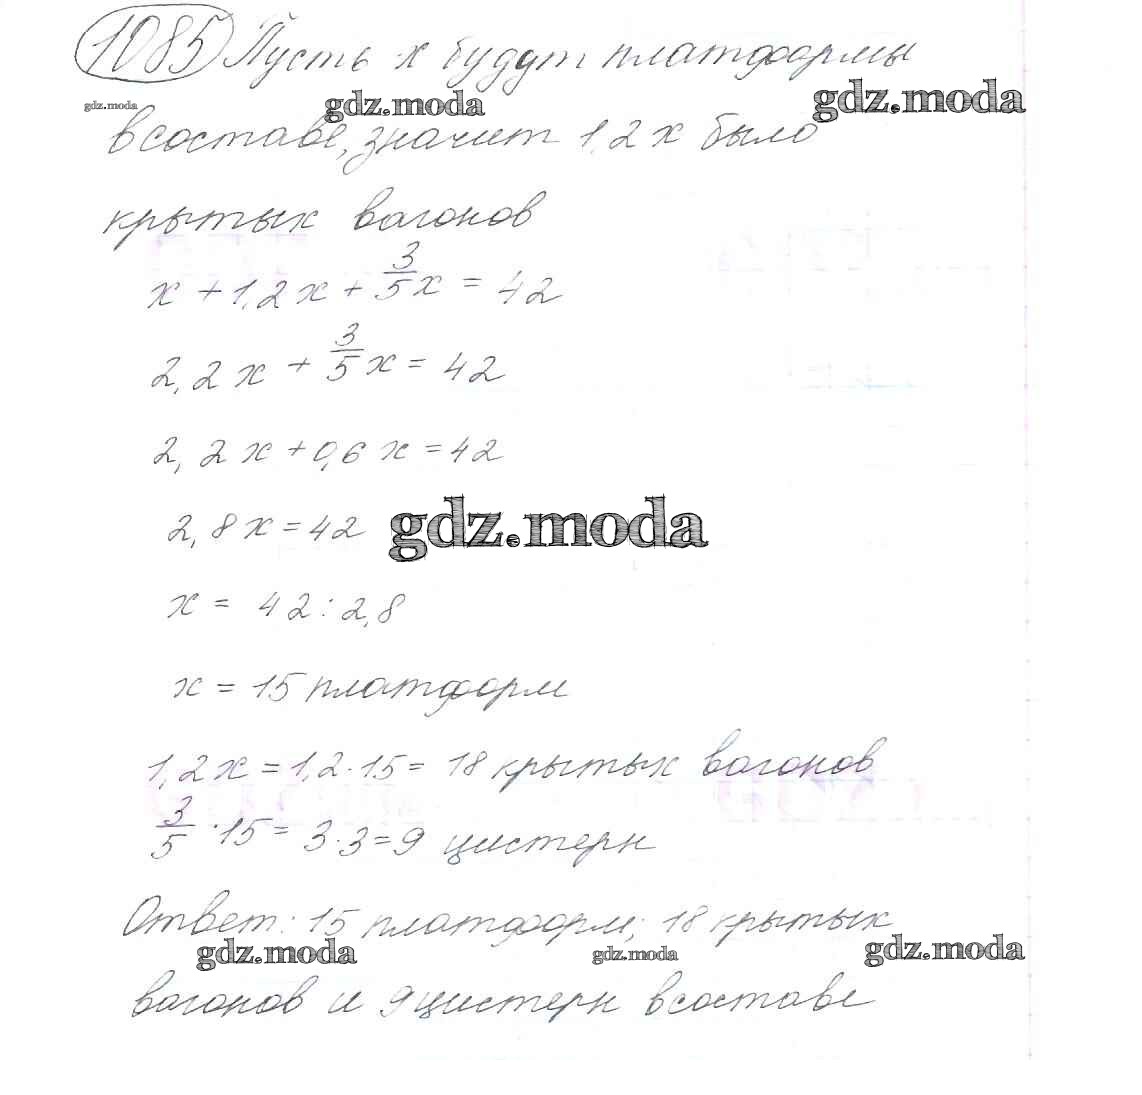 1085 Пусть x будут платформы
gdz.moda gdz.moda gdz.moda
в составе, значит 1,2x было
крытых вагонов
x + 1,2x + 3/5x = 42
2,2x + 3/5x = 42
2,2x + 0,6x = 42
2,8x = 42
gdz.moda
x = 42 : 2,8
x = 15 платформ
1,2x = 1,2 · 15 = 18 крытых вагонов
3/5 · 15 = 3 · 3 = 9 цистерн
Ответ: 15 платформ; 18 крытых
gdz.moda gdz.moda gdz.moda
вагонов и 9 цистерн в составе